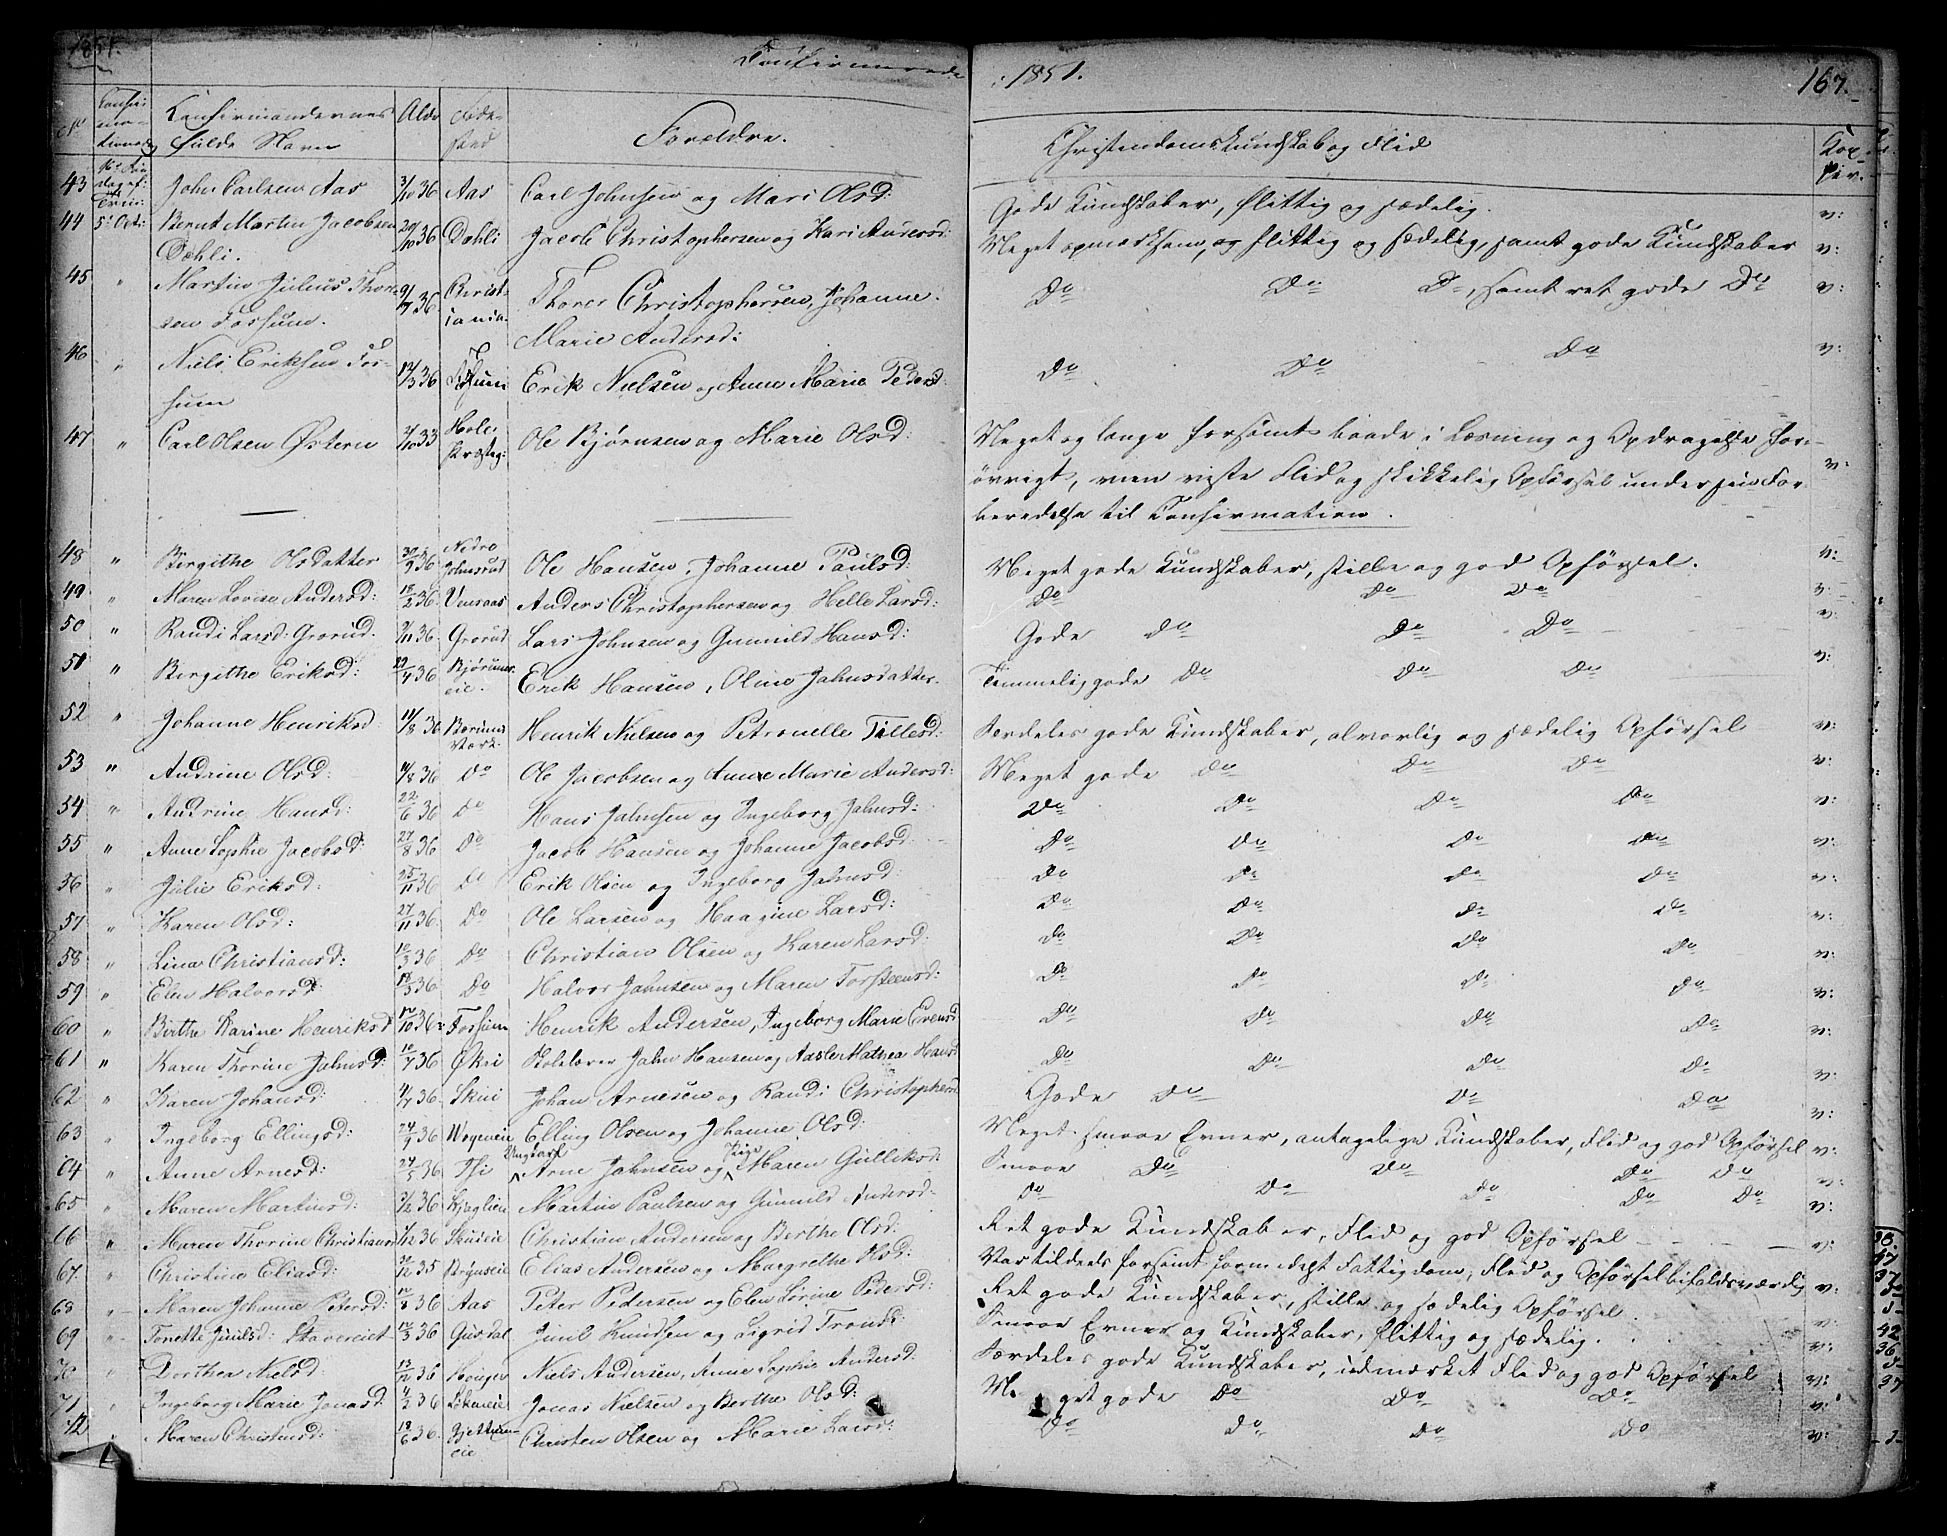 1851. Confirmerede : 1851. 167.
No Confirmationsdag Confirmandernes fulde Navn Alder Fødested Forældre. Christendomskundskab og Flid Kop-piv.
43 16de Søndag ef: Trin: John Carlsen Aas 3/10 36 Aas Carl Johnsen og Mari Olsd: Gode Kundskaber, flittig og sædelig. v:
44 5t Oct: Bernt Martin Jacobsen Dæhli. 20/10 36 Dæhli Jacob Christophersen og Kari Andersd: Meget opmærksom, og flittig og sædelig, samt gode Kundskaber v:
45 " Martin Julius Thorsen Fossum. 9/7 36 Christiania. Thorer Christophersen, Johanne Marie Andersd: Do Do Do, samt ret gode Do v:
46 " Niels Eriksen Fossum 14/3 36 Fossum Erik Nielsen og Anne Marie Pedersd: Do Do Do v:
47 " Carl Olsen Østern 2/10 33 Hole Præsteg: Ole Bjørnsen og Marie Olsd: Meget og længe forsømt baade i Læsning og Opdragelse for-
øvrigt, men viste Flid og skikkelig Opførsel under sin For- v:
beredelse til Confirmation.
48 " Birgithe Olsdatter 30/9 36 Nedre Johnsrud Ole Hansen, Johanne Paulsd: Meget gode Kundskaber, stille og god Opførsel. v:
49 " Maren Lovise Andersd: 18/2 36. Vensaas Anders Christophersen og Helle Larsd: Do Do Do v:
50 " Randi Larsd: Grorud. 9/11 36 Grorud Lars Johnsen og Gunnild Hansd: Gode Do Do Do v:
51 " Birgithe Eriksd: 29/4 36 Bjørumseie. Erik Hansen, Oline Jahnsdatter. Temmelig gode Do Do Do v:
52 " Johanne Henriksd: 11/8 36 Bærums Værk. Henrik Nielsen og Petronelle Tillesd: Særdeles gode Kundskaber, alvorlig og sædelig Opførsel v:
53 " Andrine Olsd: 11/8 36 Do Ole Jacobsen og Anne Marie Andersd: Meget gode Do Do Do v:
54 " Andrine Hansd: 22/6 36 Do Hans Jahnsen og Ingeborg Jahnsd: Do Do Do Do v:
55 " Anne Sophie Jacobsd: 27/8 36 Do Jacob Hansen og Johanne Jacobsd: Do Do Do Do v:
56 " Julie Eriksd: 25/11 36 Do Erik Olsen og Ingeborg Jahnsd: Do Do Do Do v:
57 " Karen Olsd: 27/11 36. Do Ole Larsen og Haagine Larsd: Do Do Do Do v:
58 " Lina Christiansd: 10/3 36 Do Christian Olsen og Karen Larsd: Do Do Do Do v:
59 " Elen Halvorsd: 18/5 36 Do Halvor Jahnsen og Maren Torsteensd: Do Do Do Do v:
60 " Birthe Karine Henriksd 14/10 36 Fossum Henrik Andersen, Ingeborg Marie Evensd Do Do Do Do v:
61 " Karen Thorine Jahnsd: 10/7 36 Økri Skolelærer Jahn Hansen og Aasler Mathea Hansd Do Do Do Do v:
62 " Karen Johansd: 4/7 36. Skui Johan Arnesen og Randi Christophersd Gode Do Do Do v:
63 " Ingeborg Ellingsd: 24/7 36 Wøyeneie Elling Olsen og Johanne Olsd: Meget smaae Evner, antagelige Kundskaber, Flid og god Opførsel v:
64 " Anne Arnesd: 24/5 36 Thi Ungkarl Arne Jahnsen og Pige Maren Gulliksd: Smaae Do Do Do Do v:
65 " Maren Martinsd: 3/12 36 Kjaglien Martin Paulsen og Gunnild Andersd. Do Do Do Do Do v:
66 " Maren Thorine Christiansd 1/12 36 Skuieie Christian Andersen og Berthe Olsd: Ret gode Kundskaber, Flid og god Opførsel v:
67. " Christine Eliasd: 31/12 35 Brynseie Elias Andersen og Margrethe Olsd: Var tildeels forsømt formedelst Fattigdom, Flid og Opførsel bifaldsværdig v:
68 " Maren Johanne Petersd: 12/8 36 Aas Peter Pedersen og Elen Lorine Pedersd: Ret gode Kundskaber, stille og sædelig Opførsel v:
69 " Tonette Juulsd: Stavereiet 12/3 36 Gusdal Juul Knudsen og Sigrid Trondsd: Smaae Evner og Kundskaber, flittig og sædelig. v:
70 " Dorthea Nielsd: 13/12 36 Hauger Niels Andersen, Anne Sophie Andersd: Særdeles gode Kundskaber, udmærket Flid og god Opførsel v:
71 " Ingeborg Marie Jonasd: 4/2 36 Løkeneie Jonas Nielsen og Berthe Olsd: Meget gode Do Do Do v:
72 " Maren Christensd: 18/6 36. Gjettumeie Christen Olsen og Marie Larsd: Do Do Do Do v: